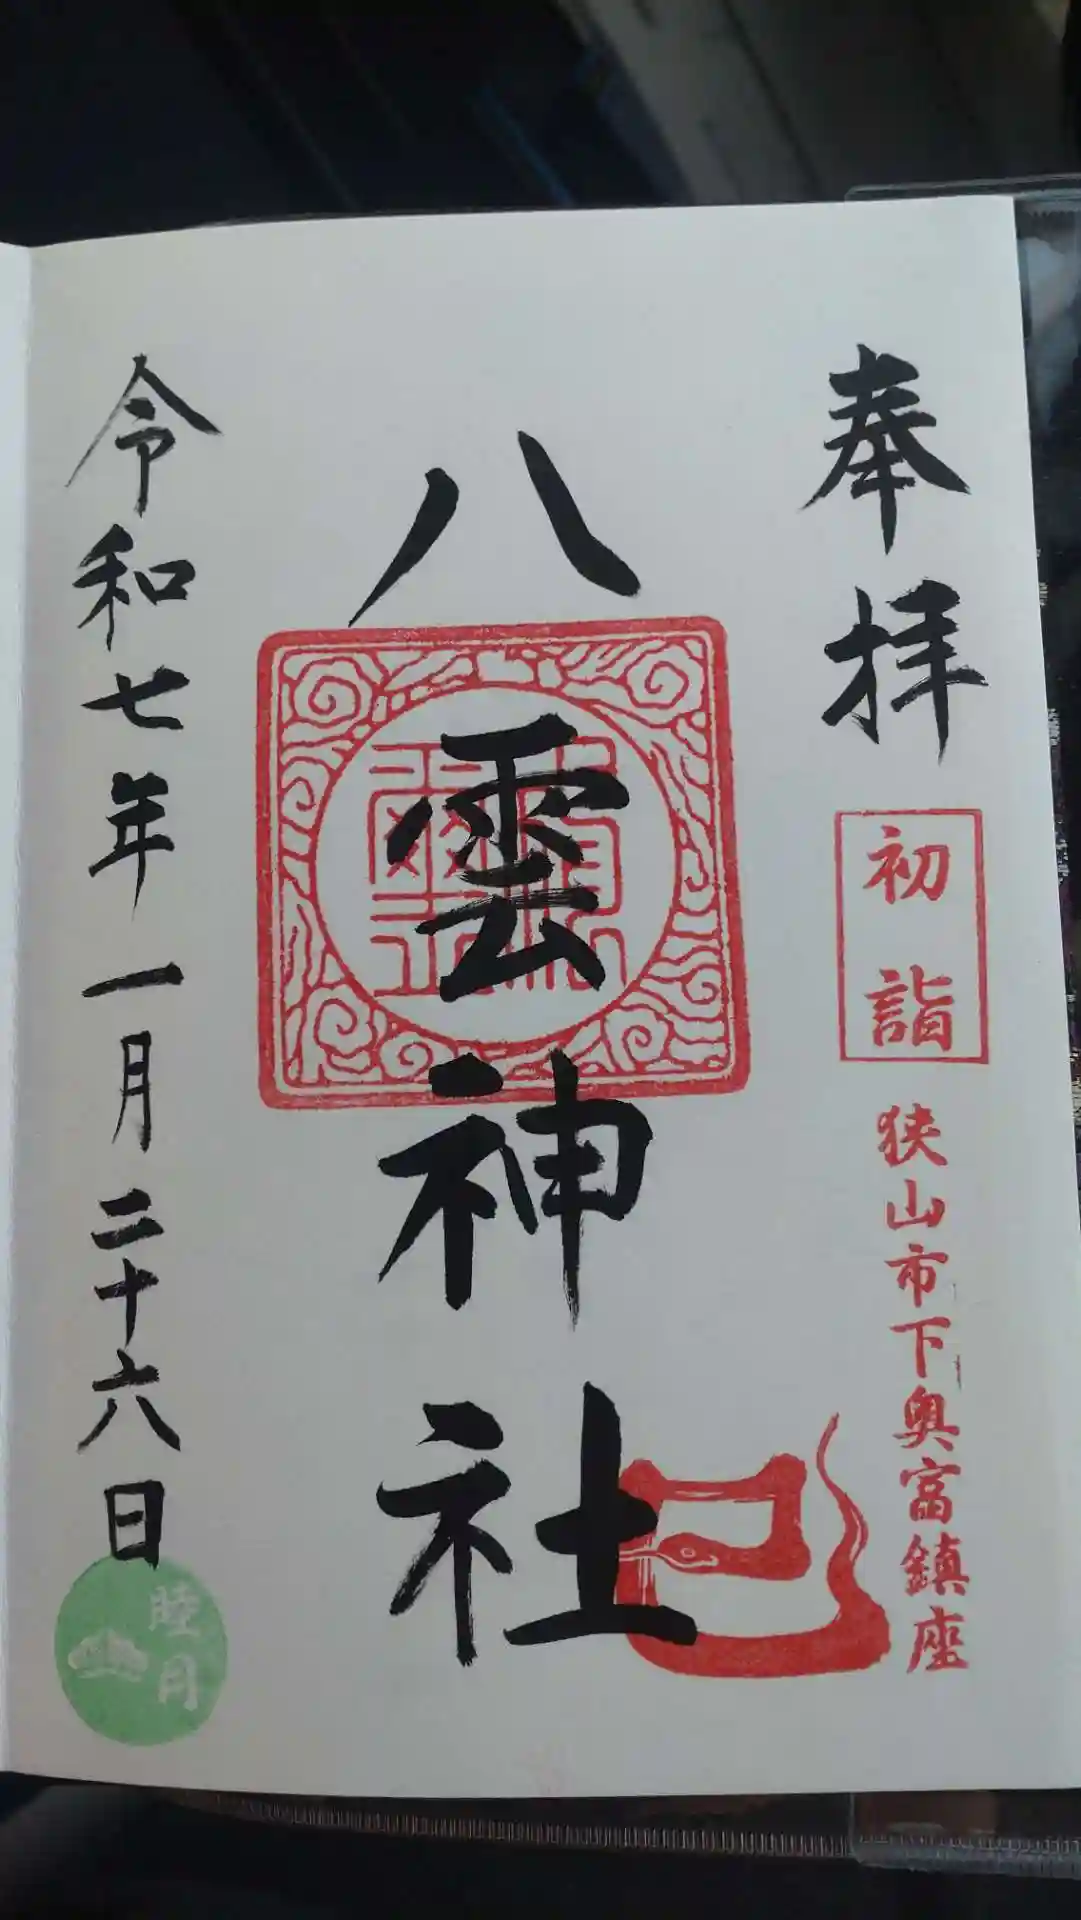 奉拝
初詣
狭山市下奥富鎮座
八雲神社
令和七年一月二十六日
睦月